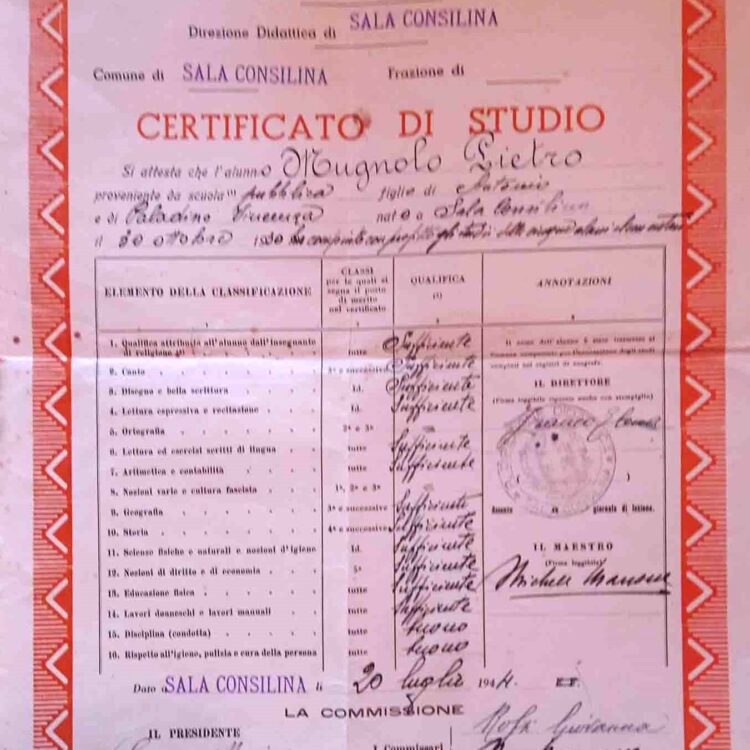 Direzione Didattica di SALA CONSILINA
Comune di SALA CONSILINA Frazione di
CERTIFICATO DI STUDIO
Si attesta che l'alunno Mugnolo Pietro
proveniente da scuola pubblica figlio di Antonio
e di Paladino Vincenza nato a Sala Consilina
il 20 ottobre 1930 ha compiuto con profitto gli studi delle cinque classi elementari
ELEMENTO DELLA CLASSIFICAZIONE
CLASSI per le quali si segna il punto di merito nel certificato
QUALIFICA (1)
ANNOTAZIONI
1 2 3 4
1. Qualifica attribuita all'alunno dall'insegnante di religione tutte Sufficiente
2. Canto 3ª e successive Sufficiente
3. Disegno e bella scrittura Id. Sufficiente
4. Lettura espressiva e recitazione tutte Sufficiente
5. Ortografia 2ª e 3ª
6. Lettura ed esercizi scritti di lingua tutte Sufficiente
7. Aritmetica e contabilità tutte Sufficiente
8. Nozioni varie e cultura fascista 1ª, 2ª e 3ª
9. Geografia 3ª e successive Sufficiente
10. Storia 4ª e successive Sufficiente
11. Scienze fisiche e naturali e nozioni d'igiene Id. Sufficiente
12. Nozioni di diritto e di economia 5ª Sufficiente
13. Educazione fisica tutte Sufficiente
14. Lavori donneschi e lavori manuali tutte Sufficiente
15. Disciplina (condotta) tutte buono
16. Rispetto all'igiene, pulizia e cura della persona tutte buono
IL DIRETTORE
(Firma leggibile riposta anche con stampiglia)
Assente da giornata di lezione.
IL MAESTRO
(Firma leggibile)
Michele
Dato a SALA CONSILINA li 20 luglio 1944 E.F.
LA COMMISSIONE
IL PRESIDENTE
Giovanna
I Commissari